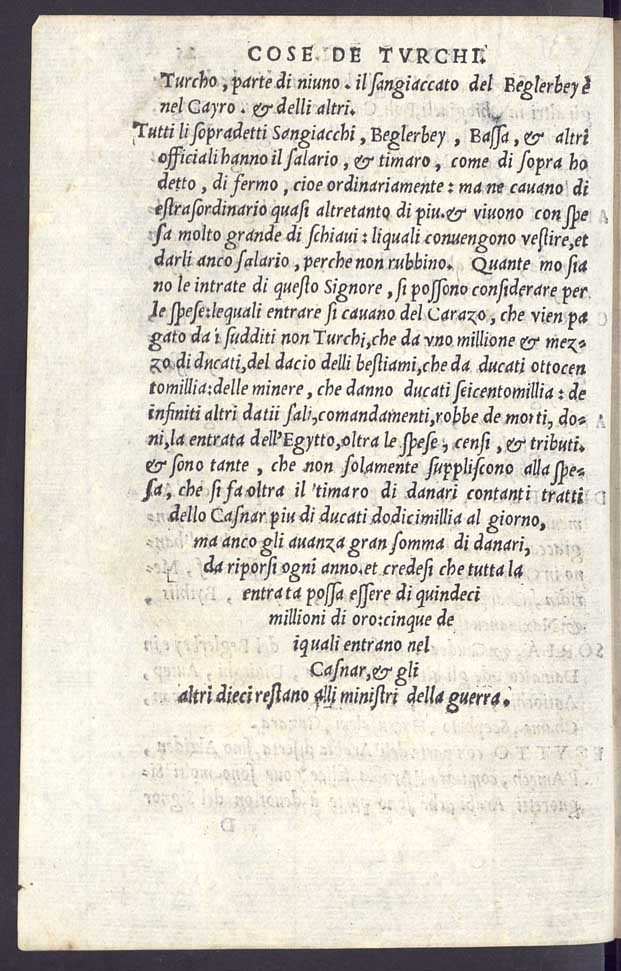 COSE DE TVRCHI.
Turcho, parte di niuno. il sangiaccato del Beglerbey è
nel Cayro. & delli altri.
Tutti li sopradetti Sangiacchi, Beglerbey, Bassa, & altri
officiali hanno il salario, & timaro, come di sopra ho
detto, di fermo, cioe ordinariamente: ma ne cauano di
estrasordinario quasi altretanto di piu. & viuono con spe
sa molto grande di schiaui: liquali conuengono vestire, et
darli anco salario, perche non rubbino. Quante mo sia
no le intrate di questo Signore, si possono considerare per
le spese: lequali entrare si cauano del Carazo, che vien pa
gato da i sudditi non Turchi, che da vno millione & mez=
zo di ducati, del dacio delli bestiami, che da ducati ottocen
tomillia: delle minere, che danno ducati seicentomillia: de
infiniti altri datii sali, comandamenti, robbe de morti, do=
ni, la entrata dell'Egytto, oltra le spese, censi, & tributi.
& sono tante, che non solamente suppliscono alla spe=
sa, che si fa oltra il timaro di danari contanti tratti
dello Casnar piu di ducati dodicimillia al giorno,
ma anco gli auanza gran somma di danari,
da riporsi ogni anno. et credesi che tutta la
entrata possa essere di quindeci
millioni di oro: cinque de
iquali entrano nel
Casnar, & gli
altri dieci restano alli ministri della guerra.